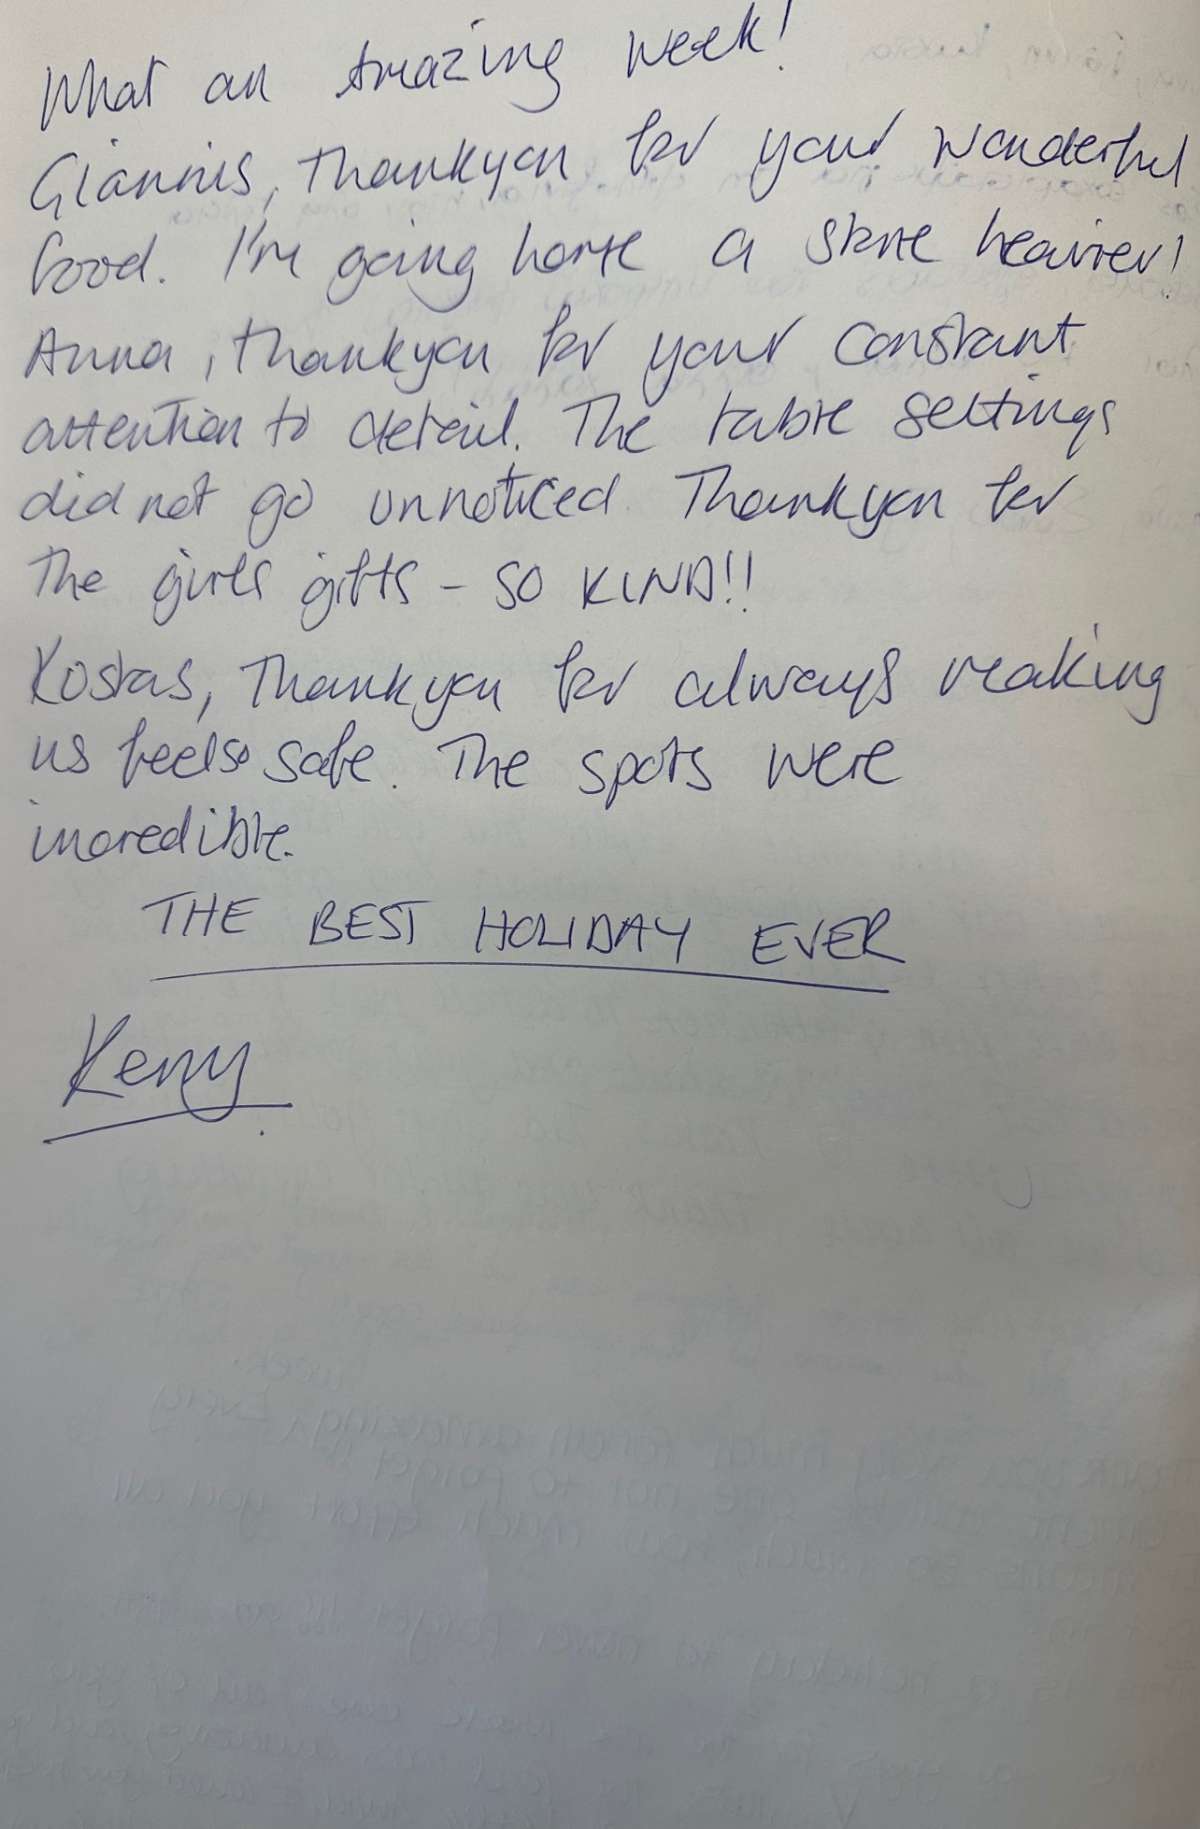 What an amazing week!
Giannis, Thankyou for your wonderful
food. I'm going home a stone heavier!
Anna, thankyou for your constant
attention to detail. The table settings
did not go unnoticed. Thankyou for
the girls gifts - SO KIND!!
Kostas, Thankyou for always making
us feel so safe. The spots were
incredible.
THE BEST HOLIDAY EVER
Kerry